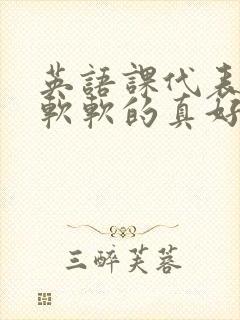 英語課代表
軟軟的真好
三醉芙蓉